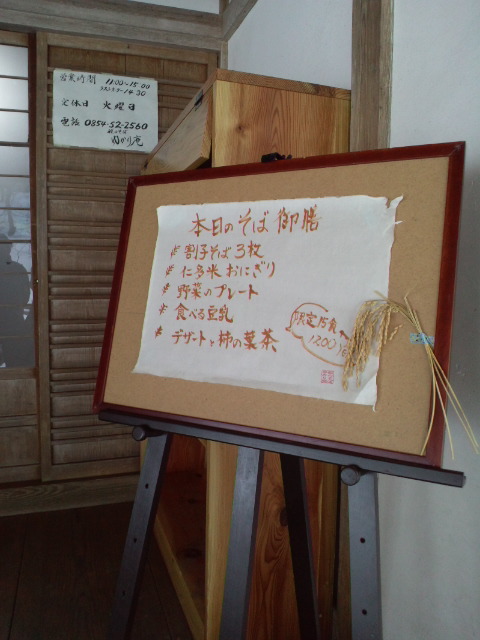 営業時間 11:00~15:00
ラストオーダー14:30
定休日 火曜日
電話 0854-52-2560
本日のそば御膳
# 割子そば3枚
# 仁多米おにぎり
# 野菜のプレート
# 食べる豆乳
# デザートと柿の葉茶
限定15食
1200円